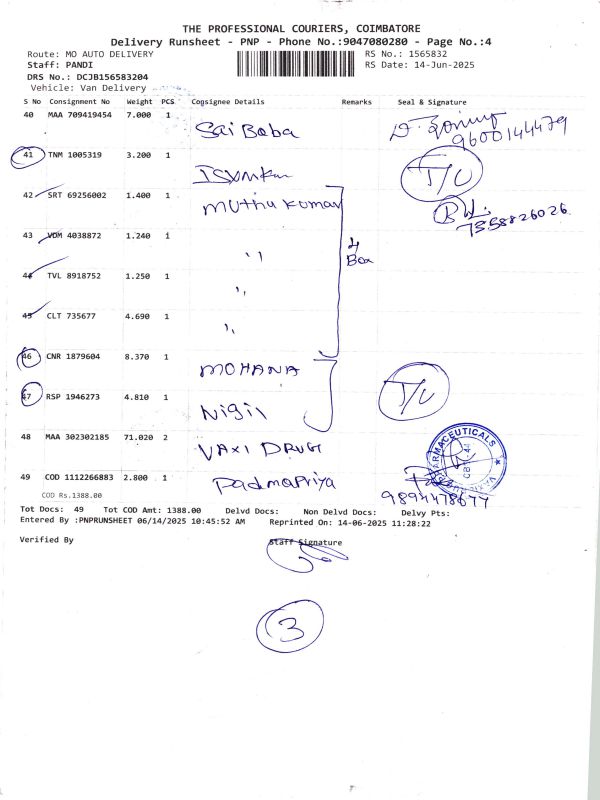 THE PROFESSIONAL COURIERS, COIMBATORE
Delivery Runsheet - PNP - Phone No.:9047080280 - Page No.:4
Route: MO AUTO DELIVERY RS No.: 1565832
Staff: PANDI RS Date: 14-Jun-2025
DRS No.: DCJB156583204
Vehicle: Van Delivery
S No Consignment No Weight PCS Consignee Details Remarks Seal & Signature
40 MAA 709419454 7.000 1 Sai Baba 9600144479
41 TNM 1005319 3.200 1 T/U
42 SRT 69256002 1.400 1 Muthu Kumar 7558826026
43 VDM 4038872 1.240 1 ,, 4 Box
44 TVL 8918752 1.250 1 ,,
45 CLT 735677 4.690 1 ,,
46 CNR 1879604 8.370 1 MOHANA
47 RSP 1946273 4.810 1 Nigil T/U
48 MAA 302302185 71.020 2 VAXI DRUG
49 COD 1112266883 2.800 1 PadmaPriya 9894478677
COD Rs.1388.00
Tot Docs: 49 Tot COD Amt: 1388.00 Delvd Docs: Non Delvd Docs: Delvy Pts:
Entered By :PNPRUNSHEET 06/14/2025 10:45:52 AM Reprinted On: 14-06-2025 11:28:22
Verified By Staff Signature
3